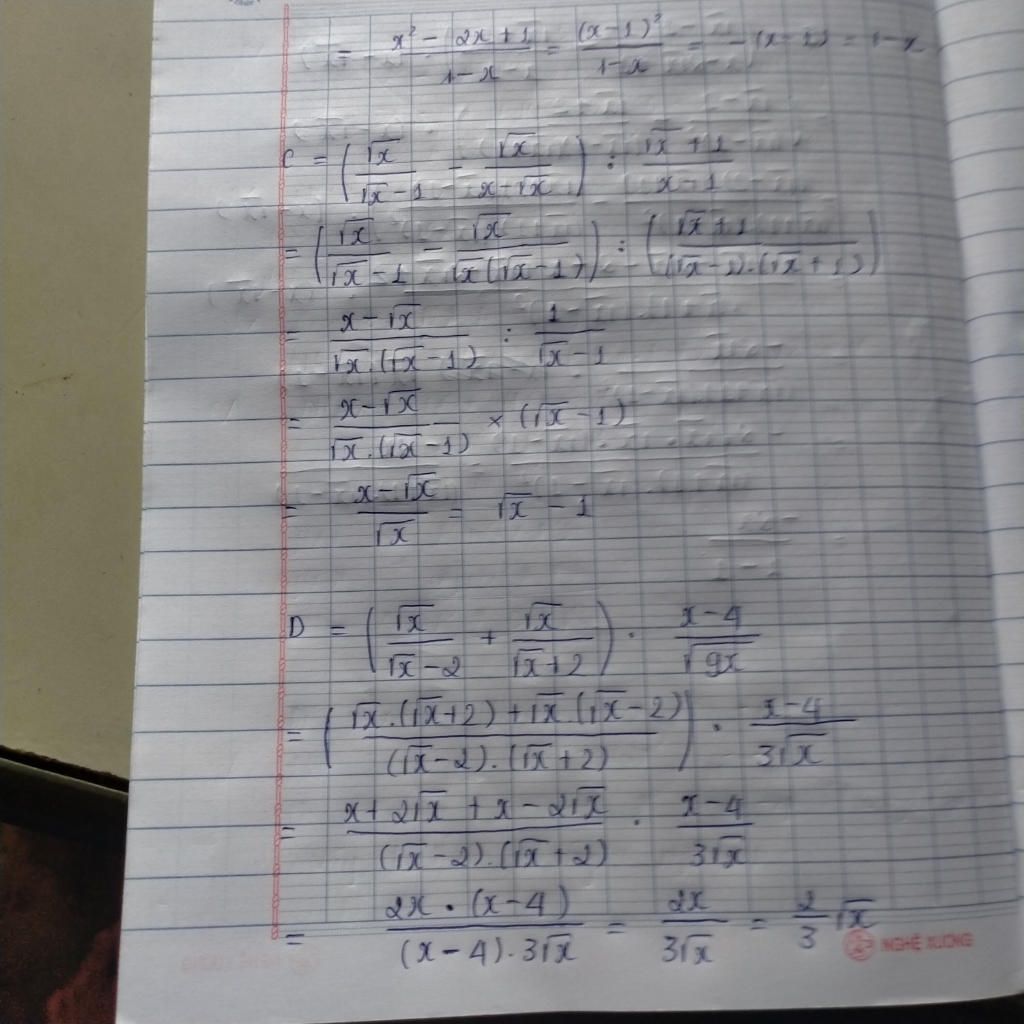 = x² - 2x + 1 / 1 - x = (x - 1)² / 1 - x = - (x - 1) = 1 - x
C = (√x / √x - 1 - √x / x - √x) : √x + 1 / x - 1
= (√x / √x - 1 - √x / √x(√x - 1)) : (√x + 1 / (√x - 1).(√x + 1))
= x - √x / √x.(√x - 1) : 1 / √x - 1
= x - √x / √x.(√x - 1) × (√x - 1)
= x - √x / √x = √x - 1
D = (√x / √x - 2 + √x / √x + 2) . x - 4 / √9x
= (√x.(√x + 2) + √x.(√x - 2) / (√x - 2).(√x + 2)) . x - 4 / 3√x
= x + 2√x + x - 2√x / (√x - 2).(√x + 2) . x - 4 / 3√x
= 2x . (x - 4) / (x - 4).3√x = 2x / 3√x = 2/3 √x
NGHỆ XƯƠNG